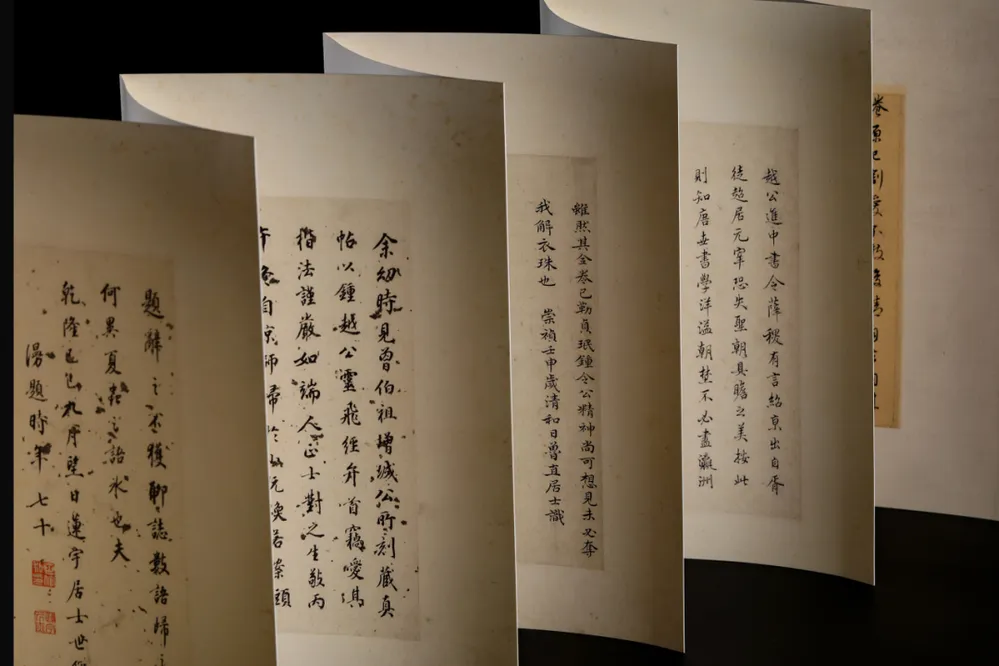 越公進中書令薛稷有言紹京出自胥
徒超居元宰恐失聖朝具瞻之美按此
則知唐世書學洋溢朝埜不必盡瀛洲
雖然其全卷已勒貞珉鍾令公精神尚可想見未必奪
我解衣珠也 崇禎壬申歲清和日魯直居士識
余幼時見曾伯祖增城公所刻藏真
帖以鍾越公靈飛經弁首竊嘆其
楷法謹嚴如端人正士對之生敬丙
午自京師歸於元奐若案頭
題辭之不獲聊誌數語歸
何異夏蟲之語氷也夫
乾隆己巳九月望日蓮宇居士世
漫題時年七十